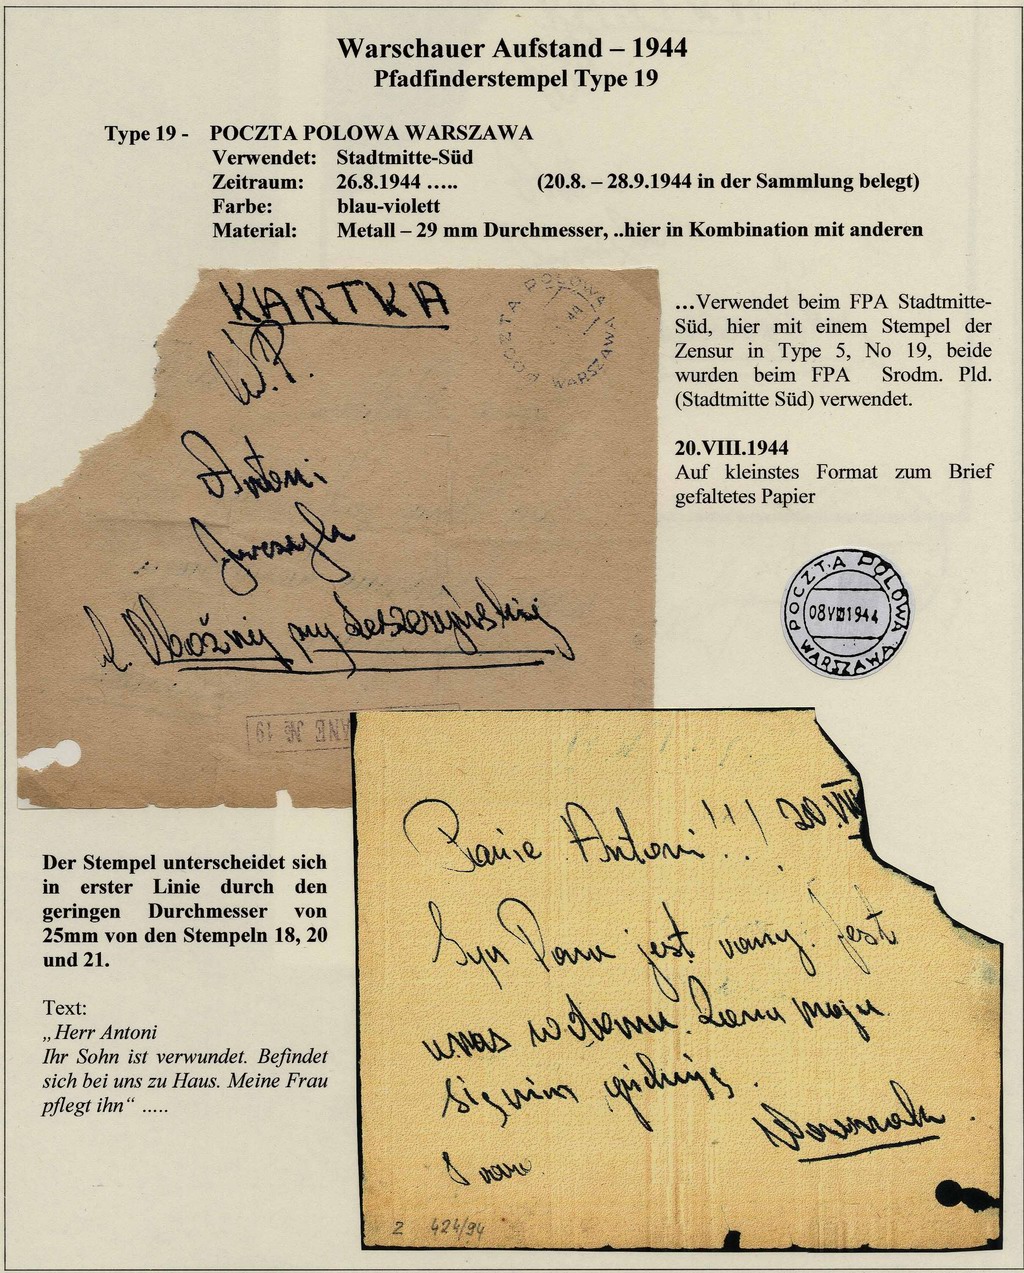 Warschauer Aufstand – 1944
Pfadfinderstempel Type 19
Type 19 - POCZTA POLOWA WARSZAWA
Verwendet: Stadtmitte-Süd
Zeitraum: 26.8.1944 ….. (20.8. – 28.9.1944 in der Sammlung belegt)
Farbe: blau-violett
Material: Metall – 29 mm Durchmesser, ..hier in Kombination mit anderen
KARTKA
W.P.
Antoni
POCZTA POLOWA WARSZAWA
ANE № 19
…Verwendet beim FPA Stadtmitte-
Süd, hier mit einem Stempel der
Zensur in Type 5, No 19, beide
wurden beim FPA Srodm. Pld.
(Stadtmitte Süd) verwendet.
20.VIII.1944
Auf kleinstes Format zum Brief
gefaltetes Papier
POCZTA POLOWA
08VIII1944
WARSZAWA
Der Stempel unterscheidet sich
in erster Linie durch den
geringen Durchmesser von
25mm von den Stempeln 18, 20
und 21.
Text:
„Herr Antoni
Ihr Sohn ist verwundet. Befindet
sich bei uns zu Haus. Meine Frau
pflegt ihn“ …..
Panie Antoni!!! 20.VIII
Syn Pana jest ranny. Jest
u nas w domu. Żona moja
się nim
Z 424/94